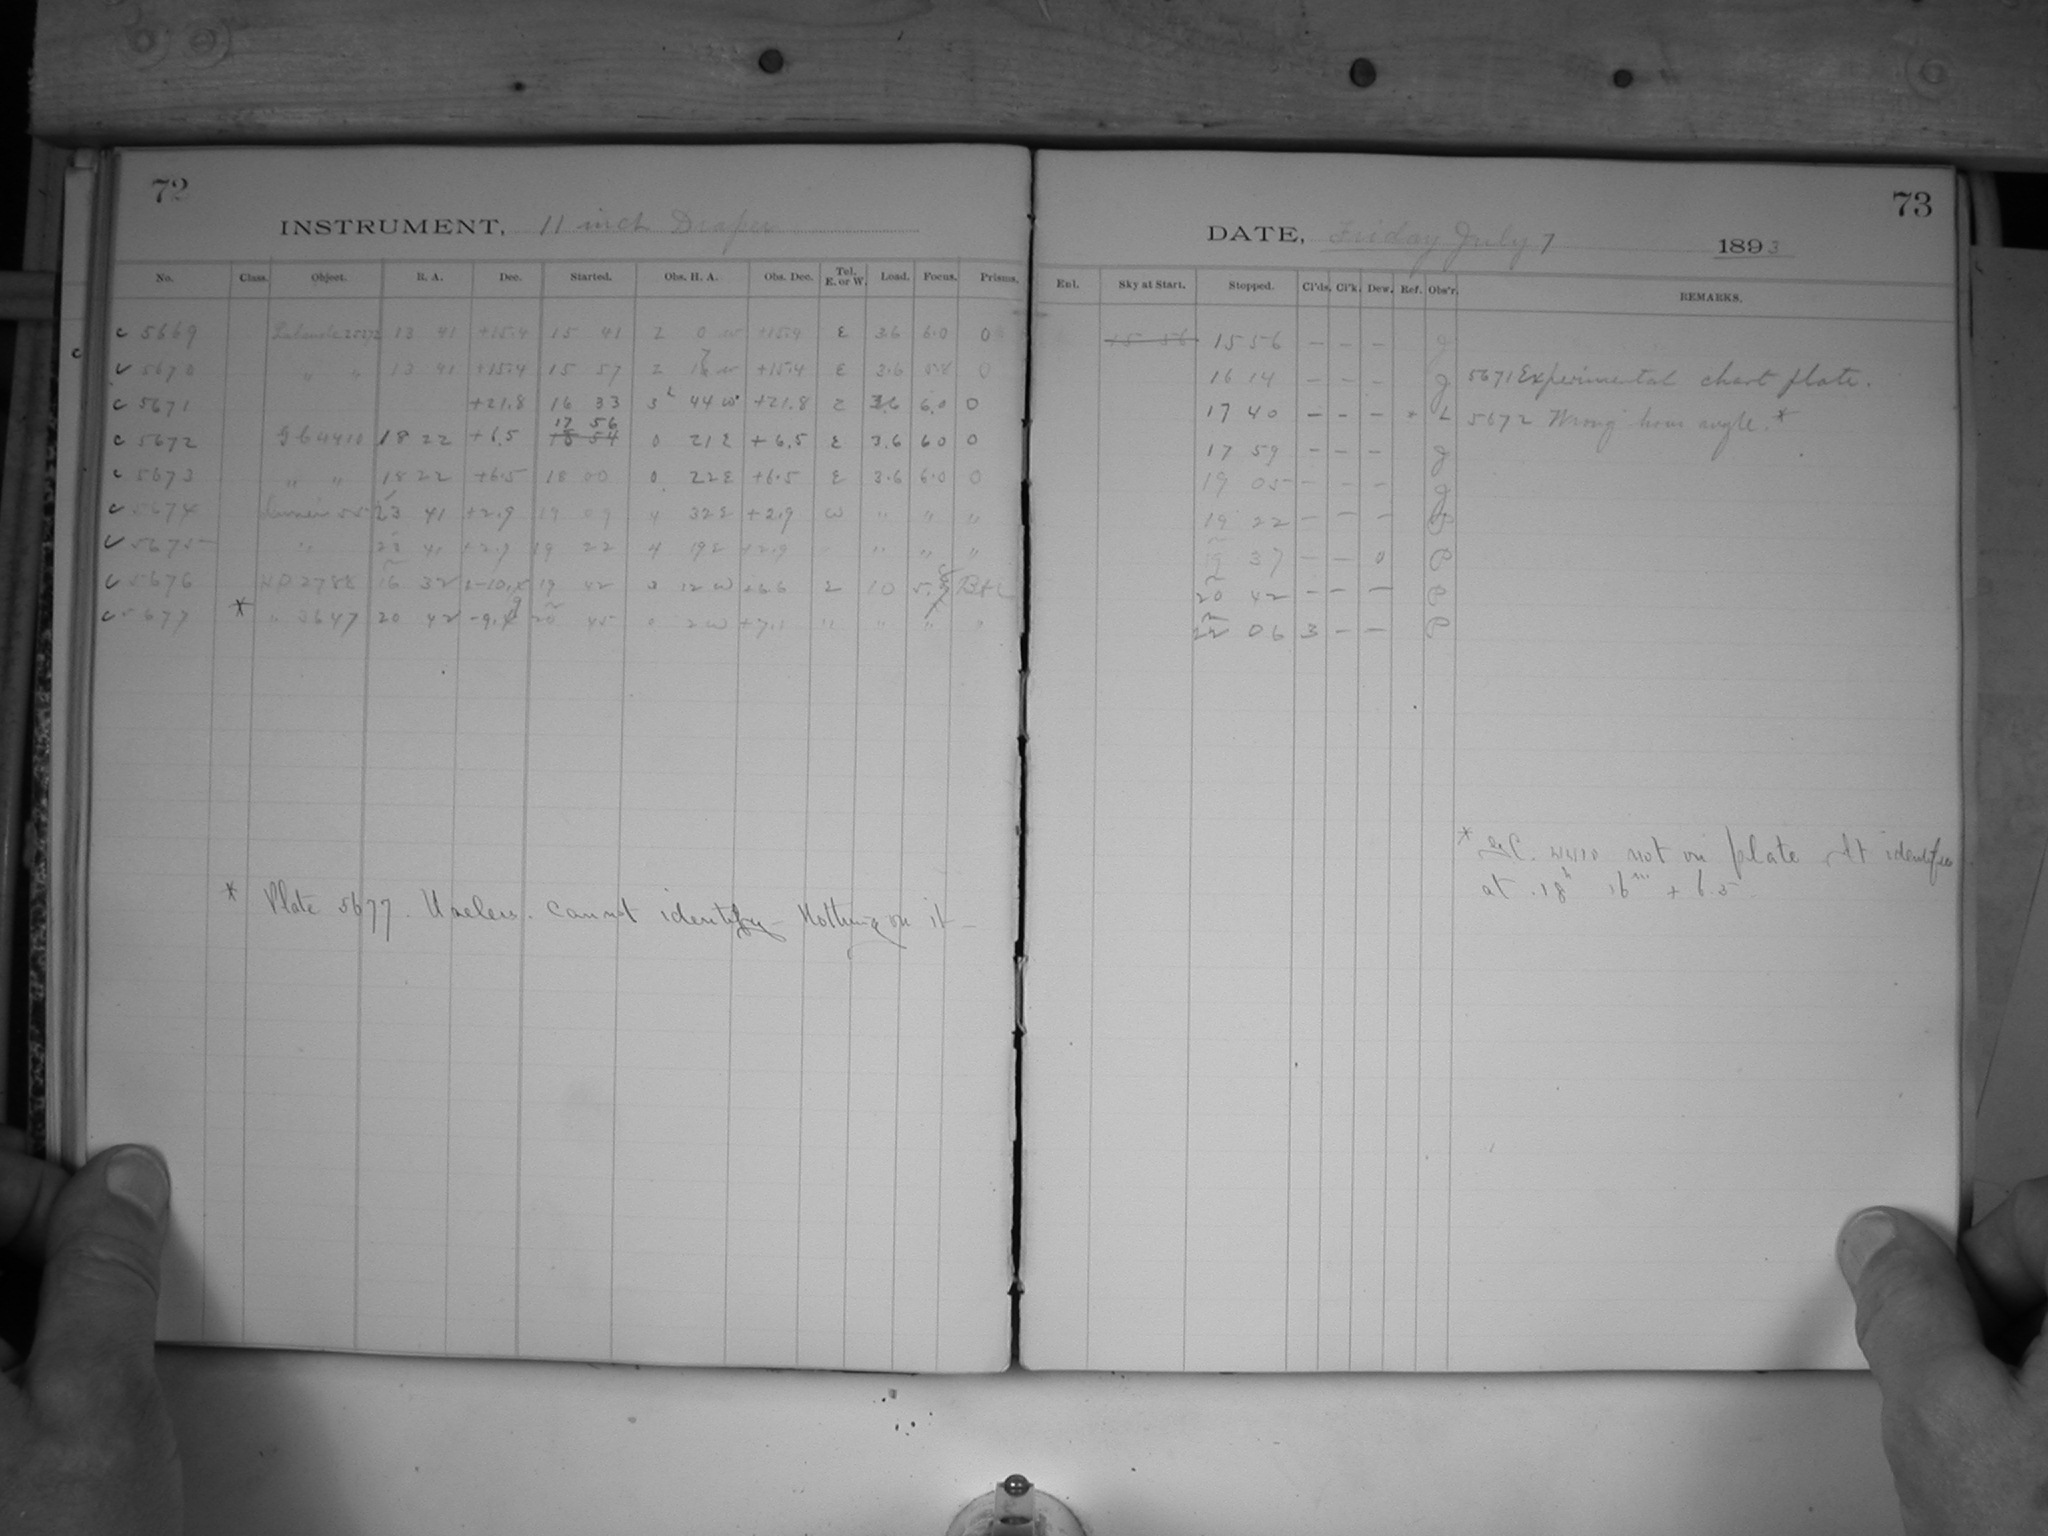 72
INSTRUMENT, 11 inch Draper
No. Class. Object. R. A. Dec. Started. Obs. H. A. Obs. Dec. Tel. E. or W. Lead. Focus. Prisms.
c 5669 Lalande 25272 13 41 +15.4 15 41 2 0 w +15.4 E 3.6 6.0 0
c 5670 " " 13 41 +15.4 15 57 2 w +15.4 E 3.6 5.8 0
c 5671 +21.8 16 33 3h 44 w +21.8 E 3.6 6.0 0
17 56
c 5672 G C 4410 18 22 +6.5 18 54 0 21 E +6.5 E 3.6 60 0
c 5673 " " 18 22 +6.5 18 00 0 22 E +6.5 E 3.6 6.0 0
c 5674 23 41 +2.9 19 09 4 32 E +2.9 w " " "
c 5675 " 23 41 +2.9 19 22 4 19 E +2.9 " " "
c 5676 2788 16 32 19 42 0 12 w +6.6 E 10
c 5677 * " 3647 20 42 20 45 0 2 w +7.1 " " " "
* Plate 5677. Useless. Cannot identify Nothing on it –
73
DATE, Friday July 7 1893
Enl. Sky at Start. Stopped. Cl'ds. Cl'k. Dew. Ref. Obs'r. REMARKS.
15 56 15 56 – – – J
16 14 – – – J 5671 Experimental chart plate.
17 40 – – – L 5672 Wrong hour angle. *
17 59 – – – J
19 05 – – – J
19 22 – – – P
19 37 – – 0 P
20 42 – – – P
22 06 3 – – P
* G.C. 4410 not on plate. It identifies
at 18h 16m + 6.5